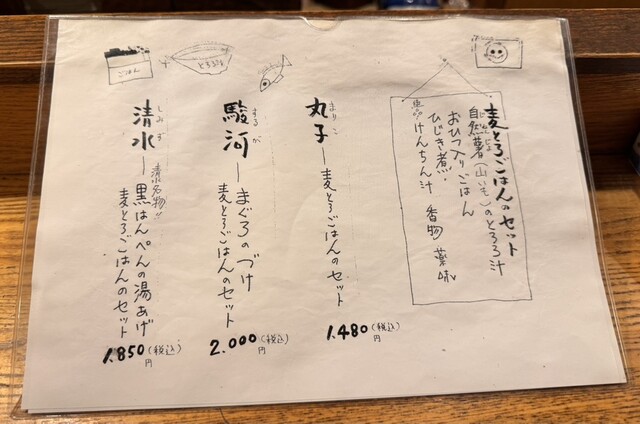 麦とろごはんのセット
自然薯(山いも)のとろろ汁
おひつ入りごはん
ひじき煮・
けんちん汁 香物 薬味
まりこ
丸子ー麦とろごはんのセット
1.480(税込)
円
するが
駿河ーまぐろのづけ
麦とろごはんのセット
2.000(税込)
円
しみず
清水ー黒はんぺんの湯あげ
清水名物!!
麦とろごはんのセット
1.850(税込)
円
ごはん